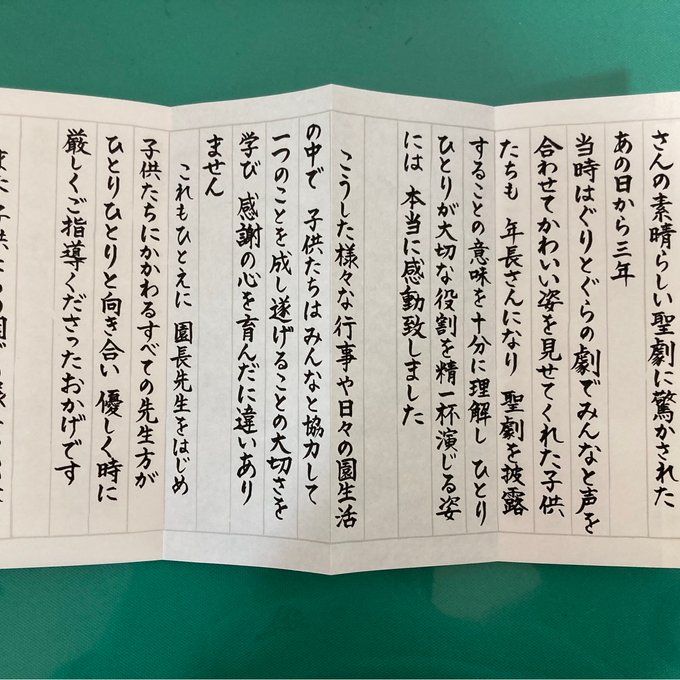 さんの素晴らしい聖劇に驚かされた
あの日から三年
当時はぐりとぐらの劇でみんなと声を
合わせてかわいい姿を見せてくれた子供
たちも 年長さんになり 聖劇を披露
することの意味を十分に理解し ひとり
ひとりが大切な役割を精一杯演じる姿
には 本当に感動致しました
こうした様々な行事や日々の園生活
の中で 子供たちはみんなと協力して
一つのことを成し遂げることの大切さを
学び 感謝の心を育んだに違いあり
ません
これもひとえに 園長先生をはじめ
子供たちにかかわるすべての先生方が
ひとりひとりと向き合い 優しく時に
厳しくご指導くださったおかげです
また 子供たちの